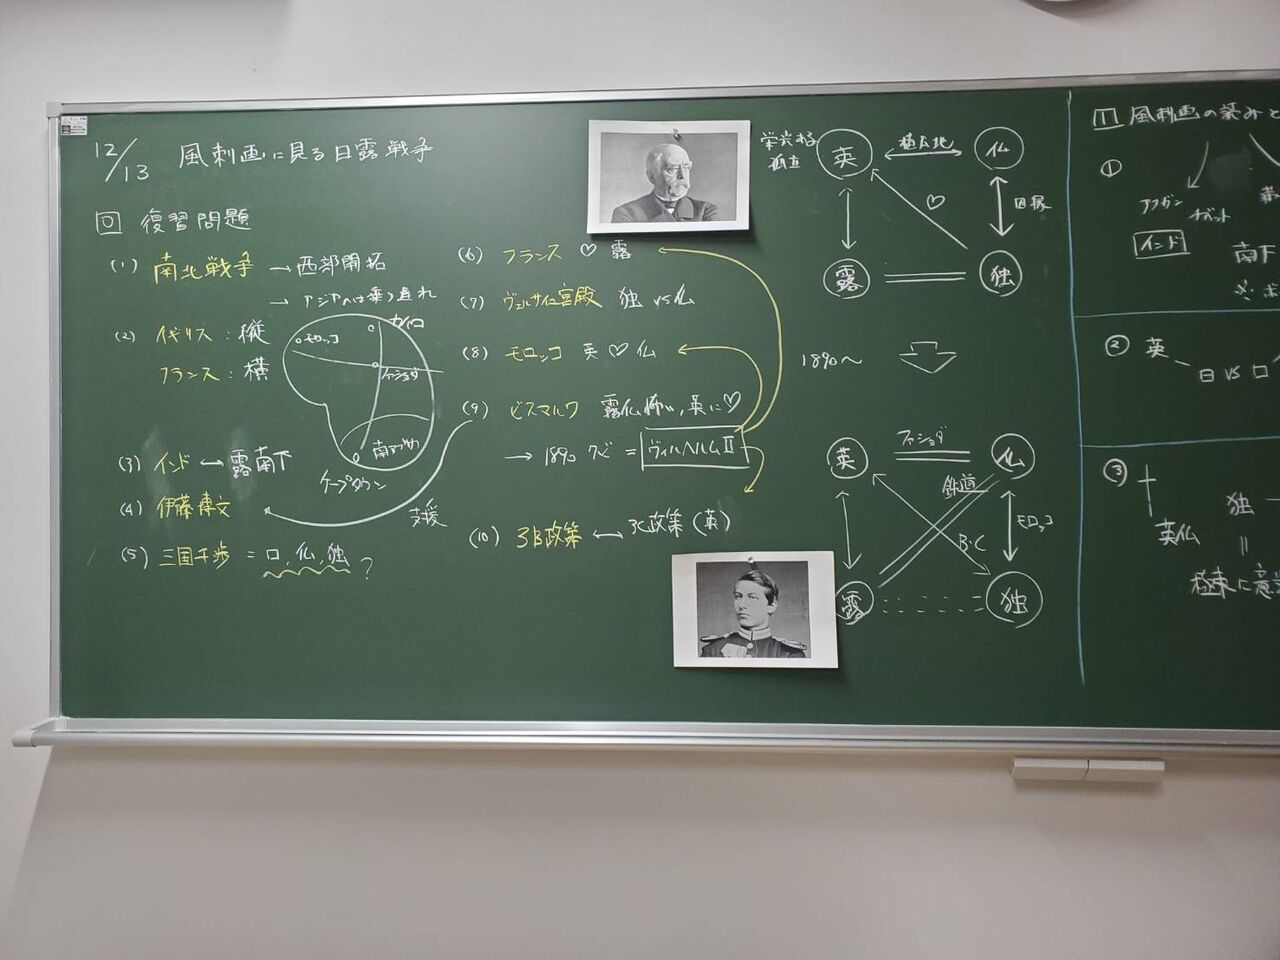 12/13 風刺画に見る日露戦争
0 復習問題
(1) 南北戦争 → 西部開拓
→ アジアへは乗り遅れ
(2) イギリス：縦
フランス：横
モロッコ
カイロ
ファショダ
南アフリカ
ケープタウン
(3) インド ← 露南下
(4) 伊藤博文
支援
(5) 三国干渉 = ロ, 仏, 独 ?
(6) フランス ♡ 露
(7) ヴェルサイユ宮殿 独 vs 仏
(8) モロッコ 英 ♡ 仏
(9) ビスマルク 露仏怖い, 英に♡
→ 1890 クビ = ヴィルヘルムⅡ
(10) 3B政策 ↔ 3C政策 (英)
栄光ある
孤立
英 植民地 仏
♡
因縁
露 独
1890〜
英 ファショダ 仏
鉄道
B・C
モロッコ
露 独
1 風刺画の読み
①
アフガン
インド
南下
②
英
日 vs ロ
③
英仏
独
極東に意